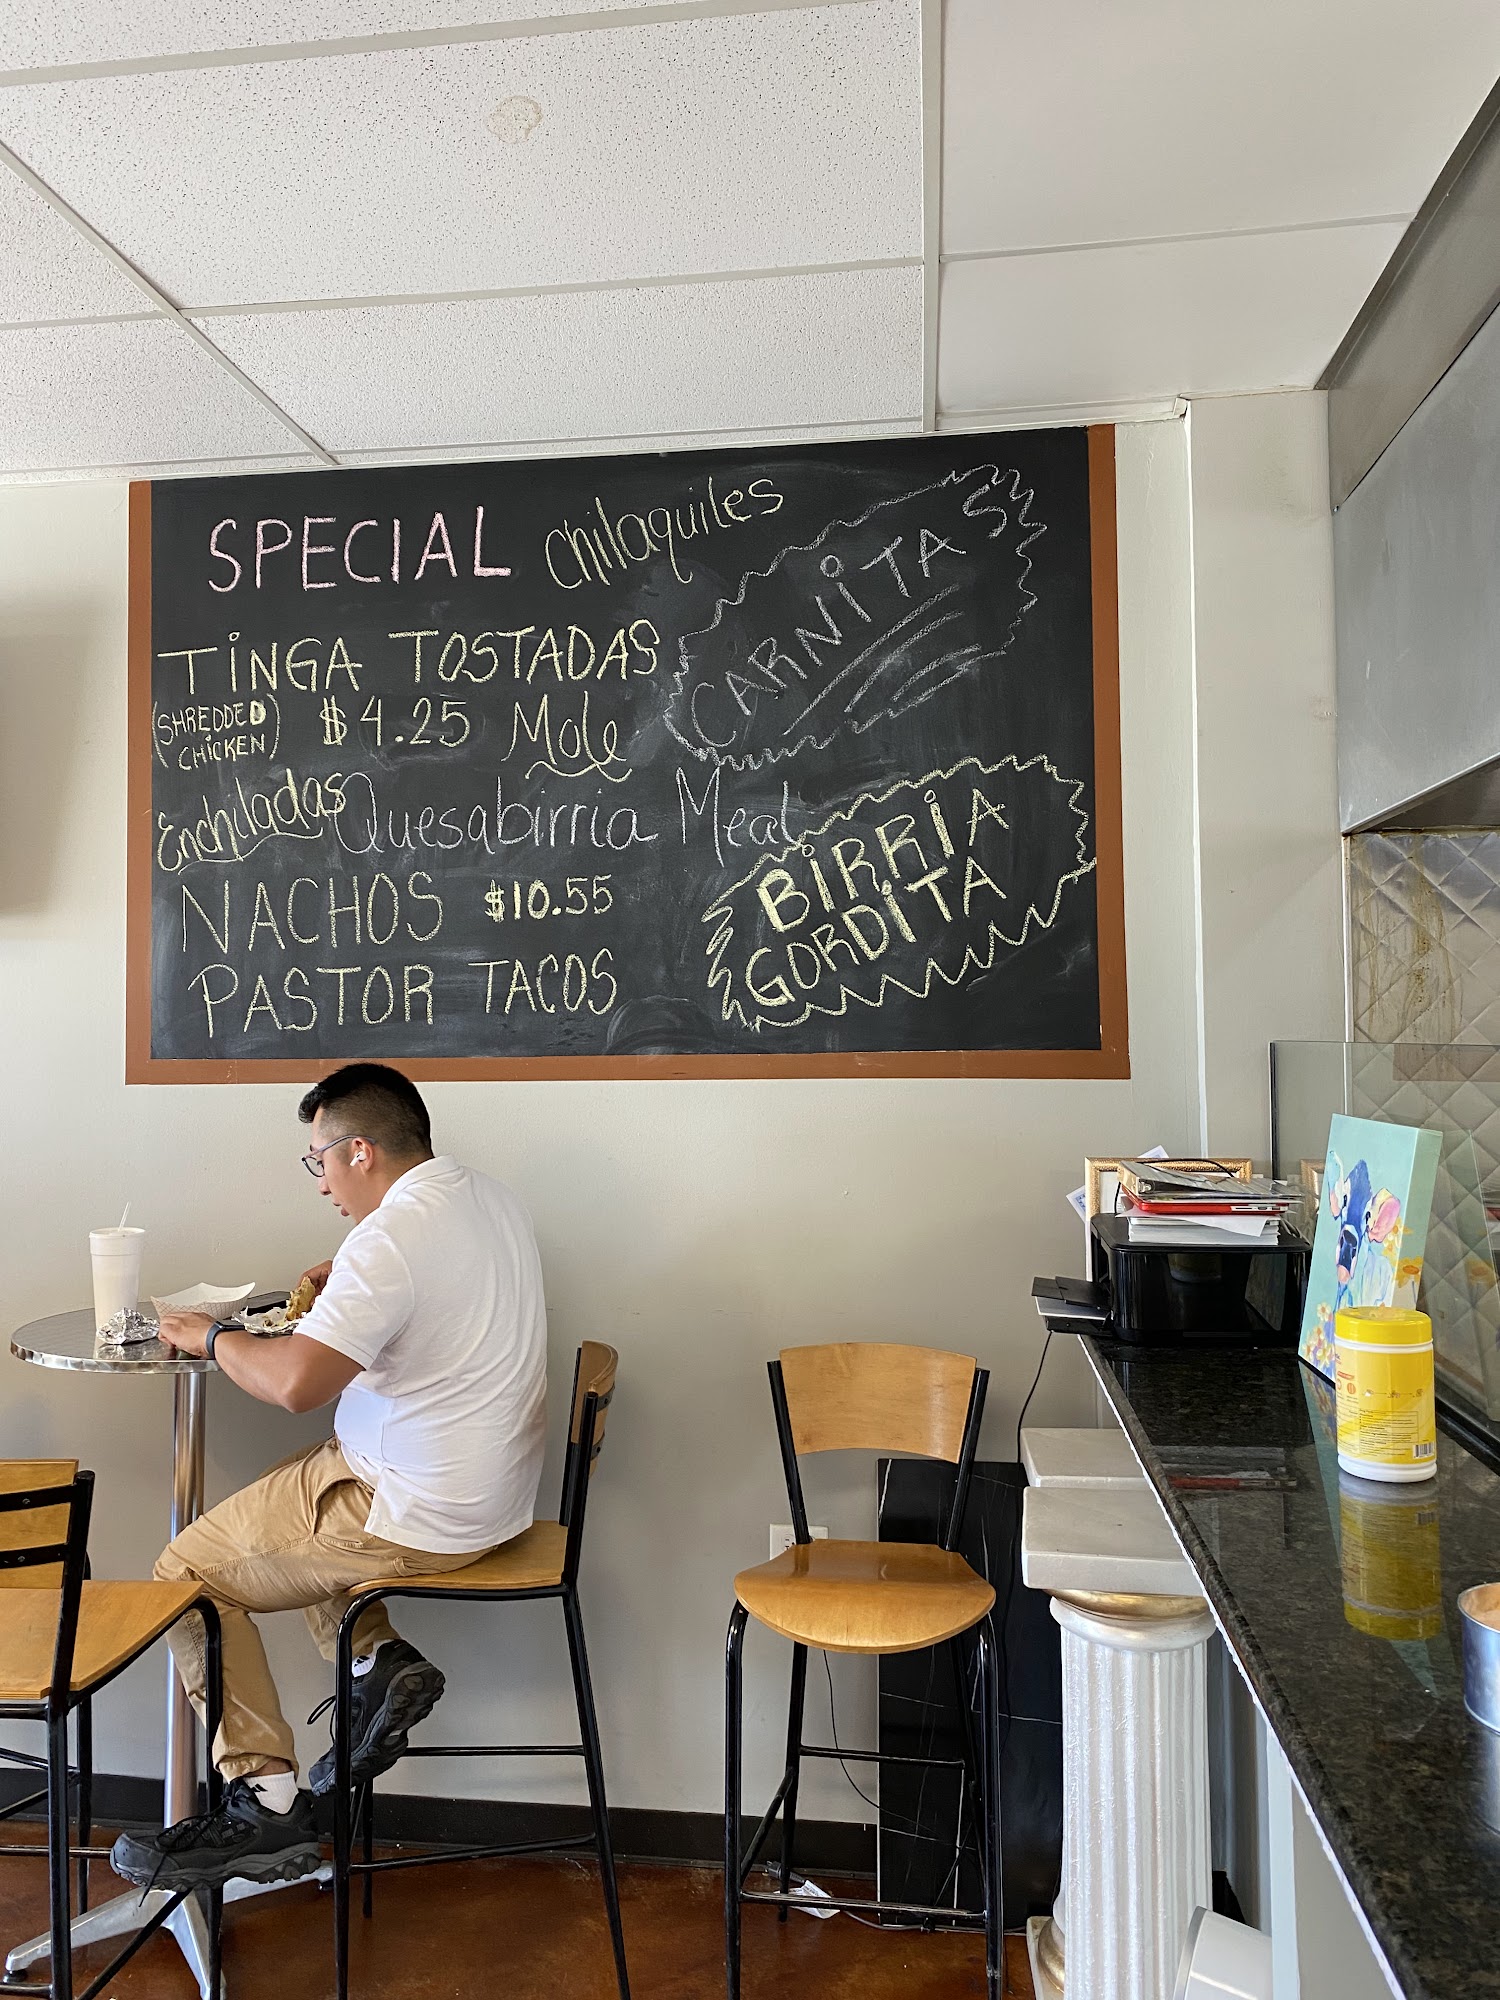 SPECIAL Chilaquiles
CARNiTAS
TiNGA TOSTADAS
(SHREDDED
CHiCKEN)
$4.25 Mole
Enchiladas Quesabirria Meal
NACHOS $10.55
PASTOR TACOS
BiRRiA
GORDiTA